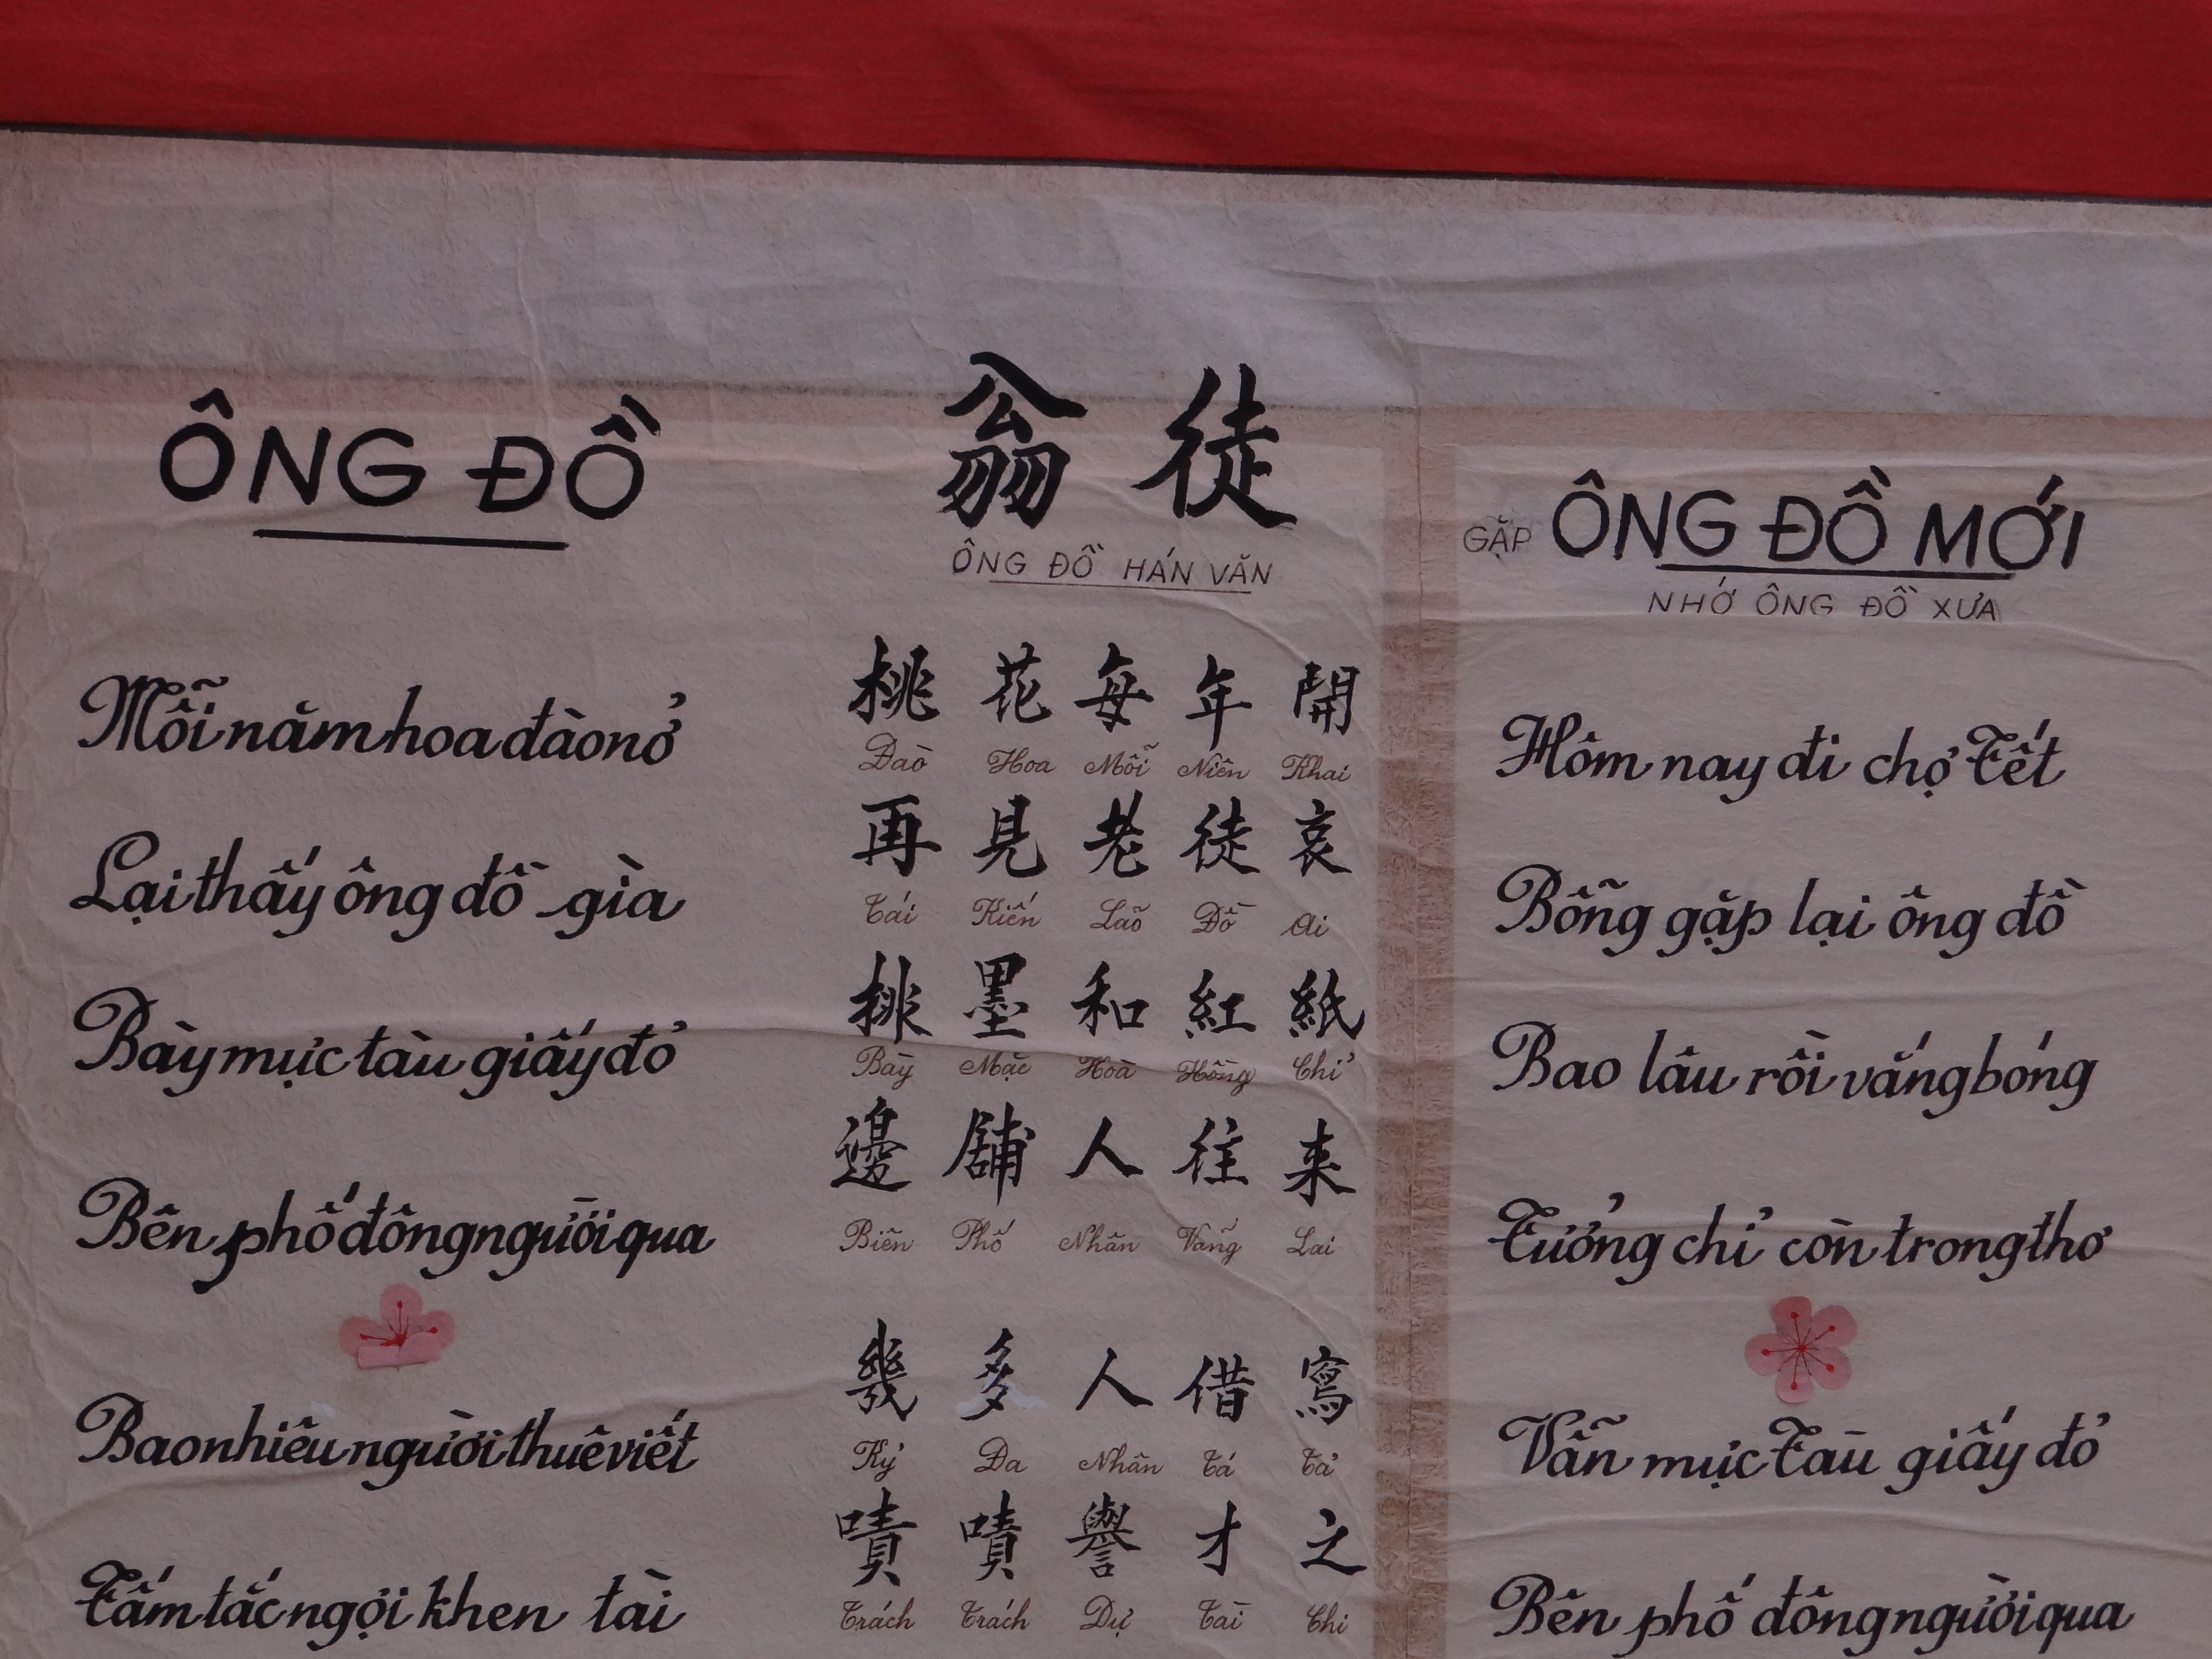 ÔNG ĐỒ
Mỗi năm hoa đào nở
Lại thấy ông đồ già
Bày mực tàu giấy đỏ
Bên phố đông người qua
Bao nhiêu người thuê viết
Tấm tắc ngợi khen tài
翁 徒
ÔNG ĐỒ HÁN VĂN
桃 花 每 年 開
Đào Hoa Mỗi Niên Khai
再 見 老 徒 哀
Tái Kiến Lão Đồ Ai
排 墨 和 紅 紙
Bày Mặc Hoà Hồng Chỉ
邊 舖 人 往 来
Biên Phố Nhân Vãng Lai
幾 多 人 借 寫
Kỷ Đa Nhân Tá Tả
嘖 嘖 譽 才 之
Trách Trách Dự Tài Chi
GẶP ÔNG ĐỒ MỚI
NHỚ ÔNG ĐỒ XƯA
Hôm nay đi chợ Tết
Bỗng gặp lại ông đồ
Bao lâu rồi vắng bóng
Tưởng chỉ còn trong thơ
Vẫn mực Tàu giấy đỏ
Bên phố đông người qua